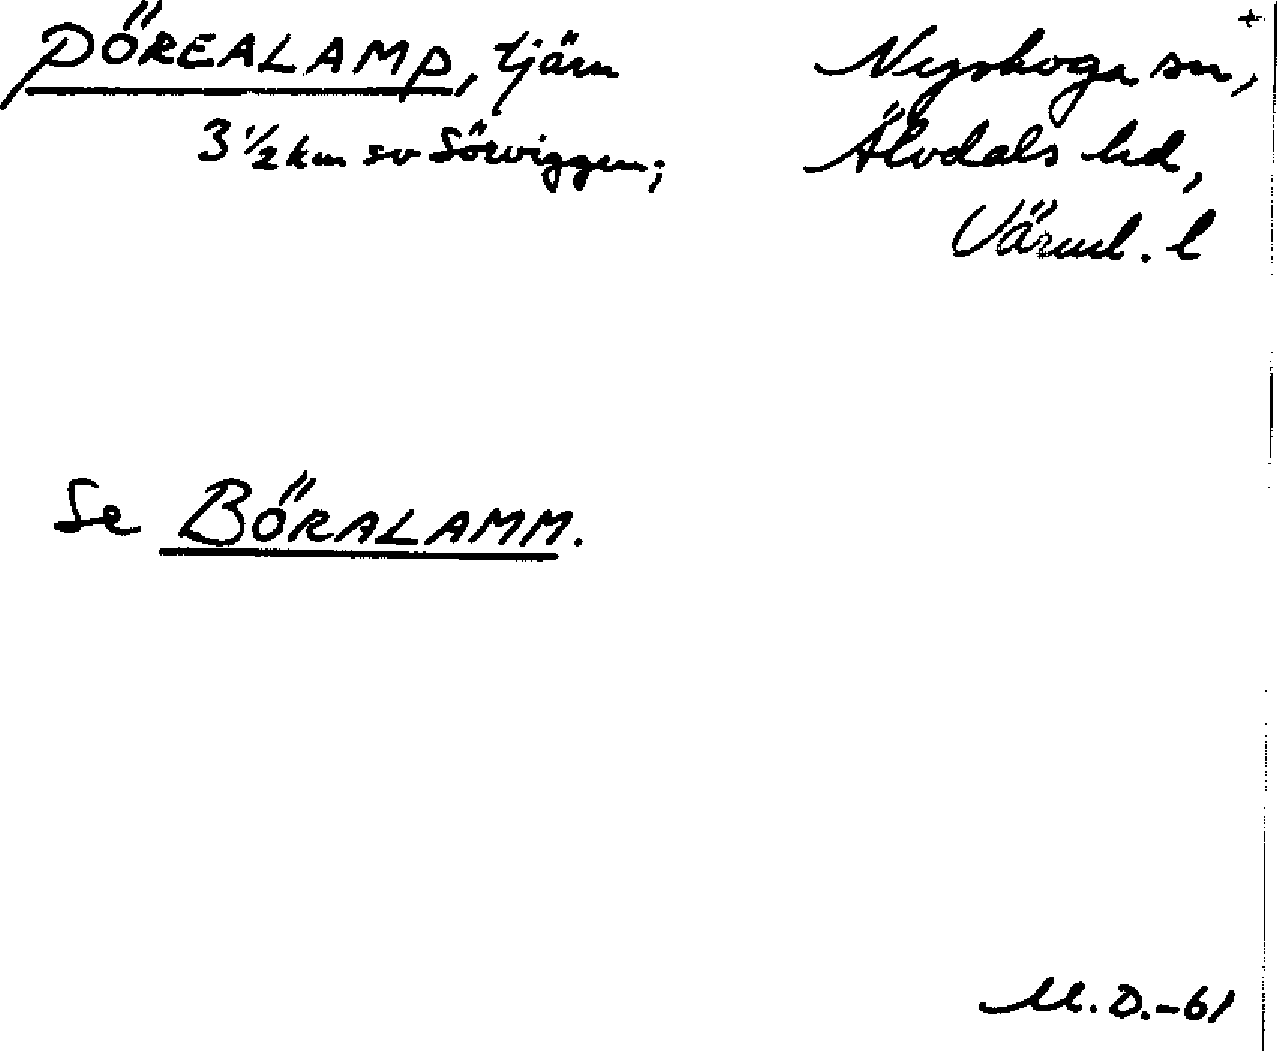 PÖREALAMP, tjärn
Nyskoga sn,
3 1/2 km sv Sörviggen;
Älvdals hd,
Värml. l
Se BÖRALAMM.
M.D.-61